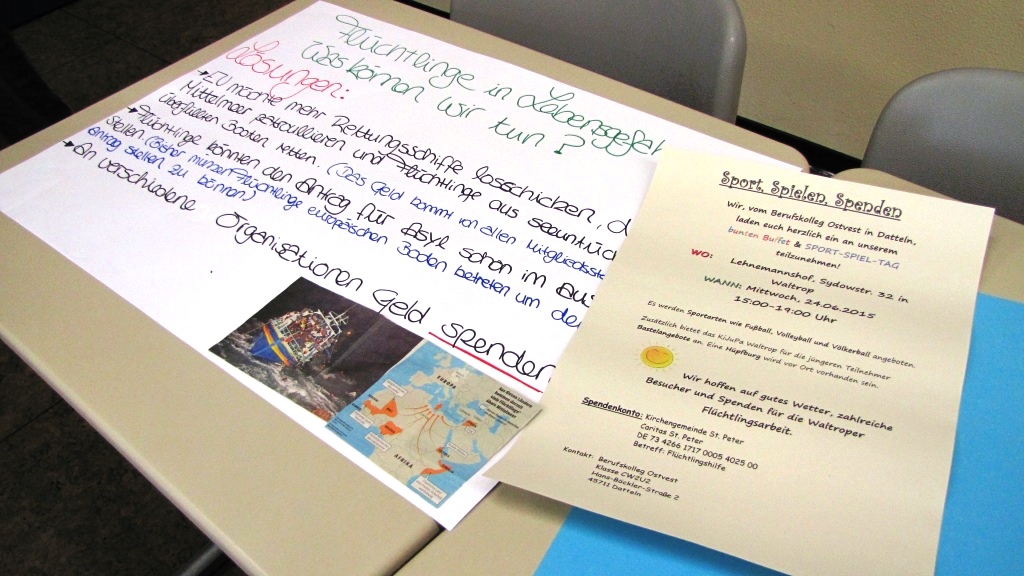 Flüchtlinge in Lebensgefah
Was können wir tun?
Lösungen:
EU möchte mehr Rettungsschiffe losschicken, d
Mittelmeer patroullieren und Flüchtlinge aus seeuntüch
überfüllten Booten retten. (Das Geld kommt von allen Mitgliedsta
Flüchtlinge könnten den Antrag für Asyl schon im Aus
stellen (Bisher müssen Flüchtlinge europäischen Boden betreten um de
Antrag stellen zu können)
An verschiedene Organisationen Geld spenden
EUROPA
AFRIKA
Sport, Spielen, Spenden
Wir, vom Berufskolleg Ostvest in Datteln,
laden euch herzlich ein an unserem
bunten Buffet & SPORT-SPIEL-TAG
teilzunehmen!
WO: Lehnemannshof, Sydowstr. 32 in
Waltrop
WANN: Mittwoch, 24.06.2015
15:00-19:00 Uhr
Es werden Sportarten wie Fußball, Volleyball und Völkerball angeboten.
Zusätzlich bietet das KiJuPa Waltrop für die jüngeren Teilnehmer
Bastelangebote an. Eine Hüpfburg wird vor Ort vorhanden sein.
Wir hoffen auf gutes Wetter, zahlreiche
Besucher und Spenden für die Waltroper
Flüchtlingsarbeit.
Spendenkonto: Kirchengemeinde St. Peter
Caritas St. Peter
DE 73 4266 1717 0005 4025 00
Betreff: Flüchtlingshilfe
Kontakt: Berufskolleg Ostvest
Klasse CW2U2
Hans-Böckler-Straße 2
45711 Datteln